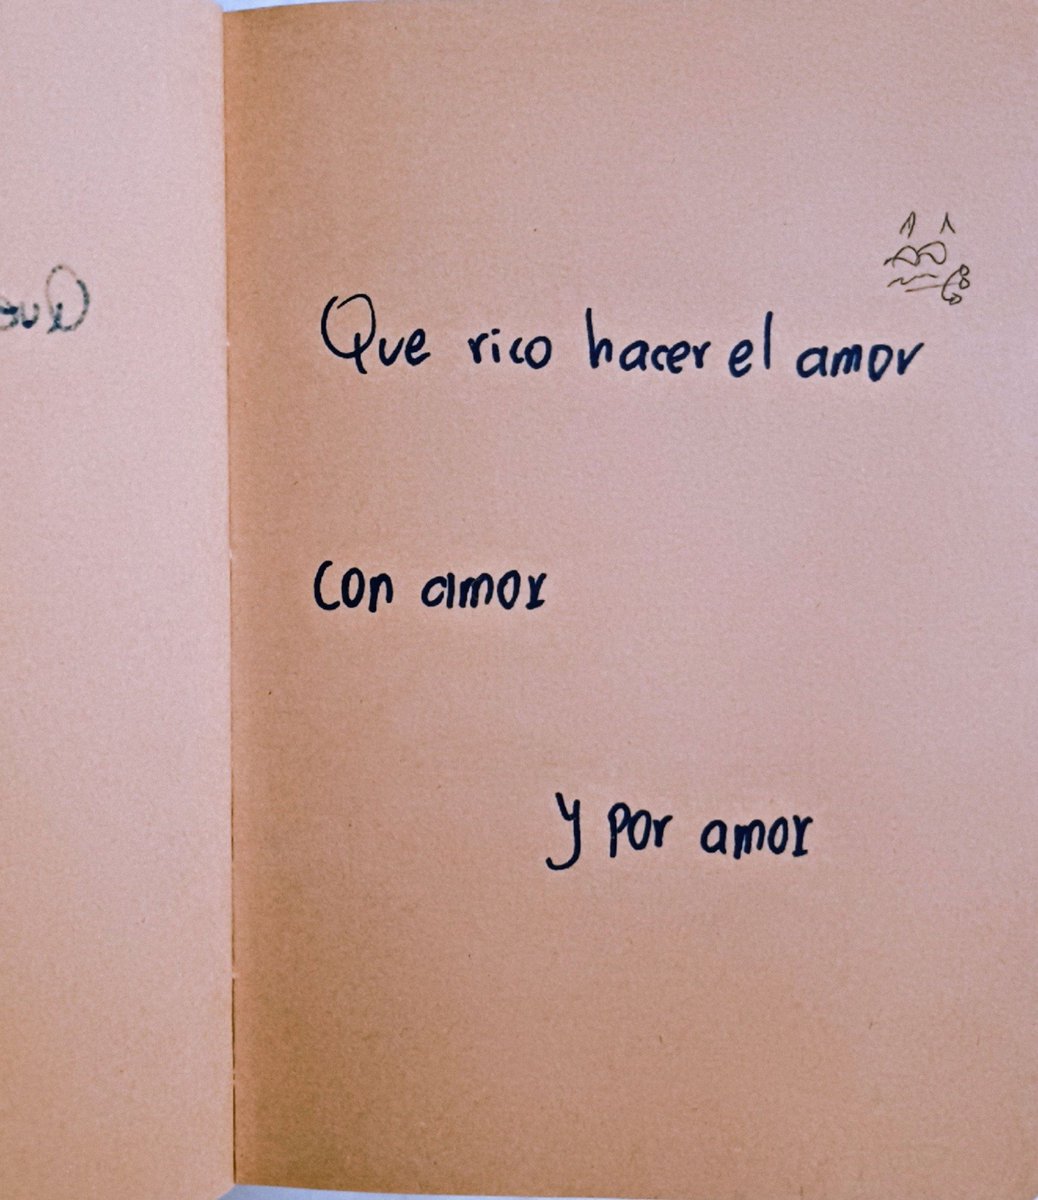 Que rico hacer el amor
con amor
y por amor